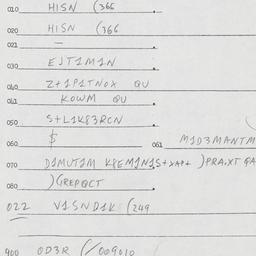 010 HISN (366
020 HISN (366
021 —
030 EJT1M1N
040 Z+1P1TNOX QU
041 KOWM QU
050 S+L1K83RCN
060 $ 061 M1D3MANTM
070 D1MUT1M K8EM1N1S+XAP+ )PRA.XT
080 )GREPQCT
022 V1SND1K (249
900 0D3R (/009010